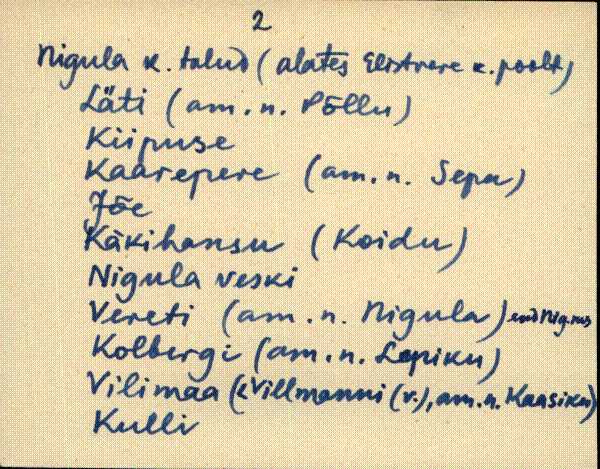 2
Nigula k. talud (alates Elistvere k. poolt)
Läti (am. n. Põllu)
Kiipuse
Kaarepere (am. n. Sepa)
Jõe
Käkihansu (Koidu)
Nigula veski
Vereti (am. n. Nigula) end Nig.
Kolbergi (am. n. Lepiku)
Vilimaa (< Villmanni (v.), am. n. Kaasiku)
Kulli